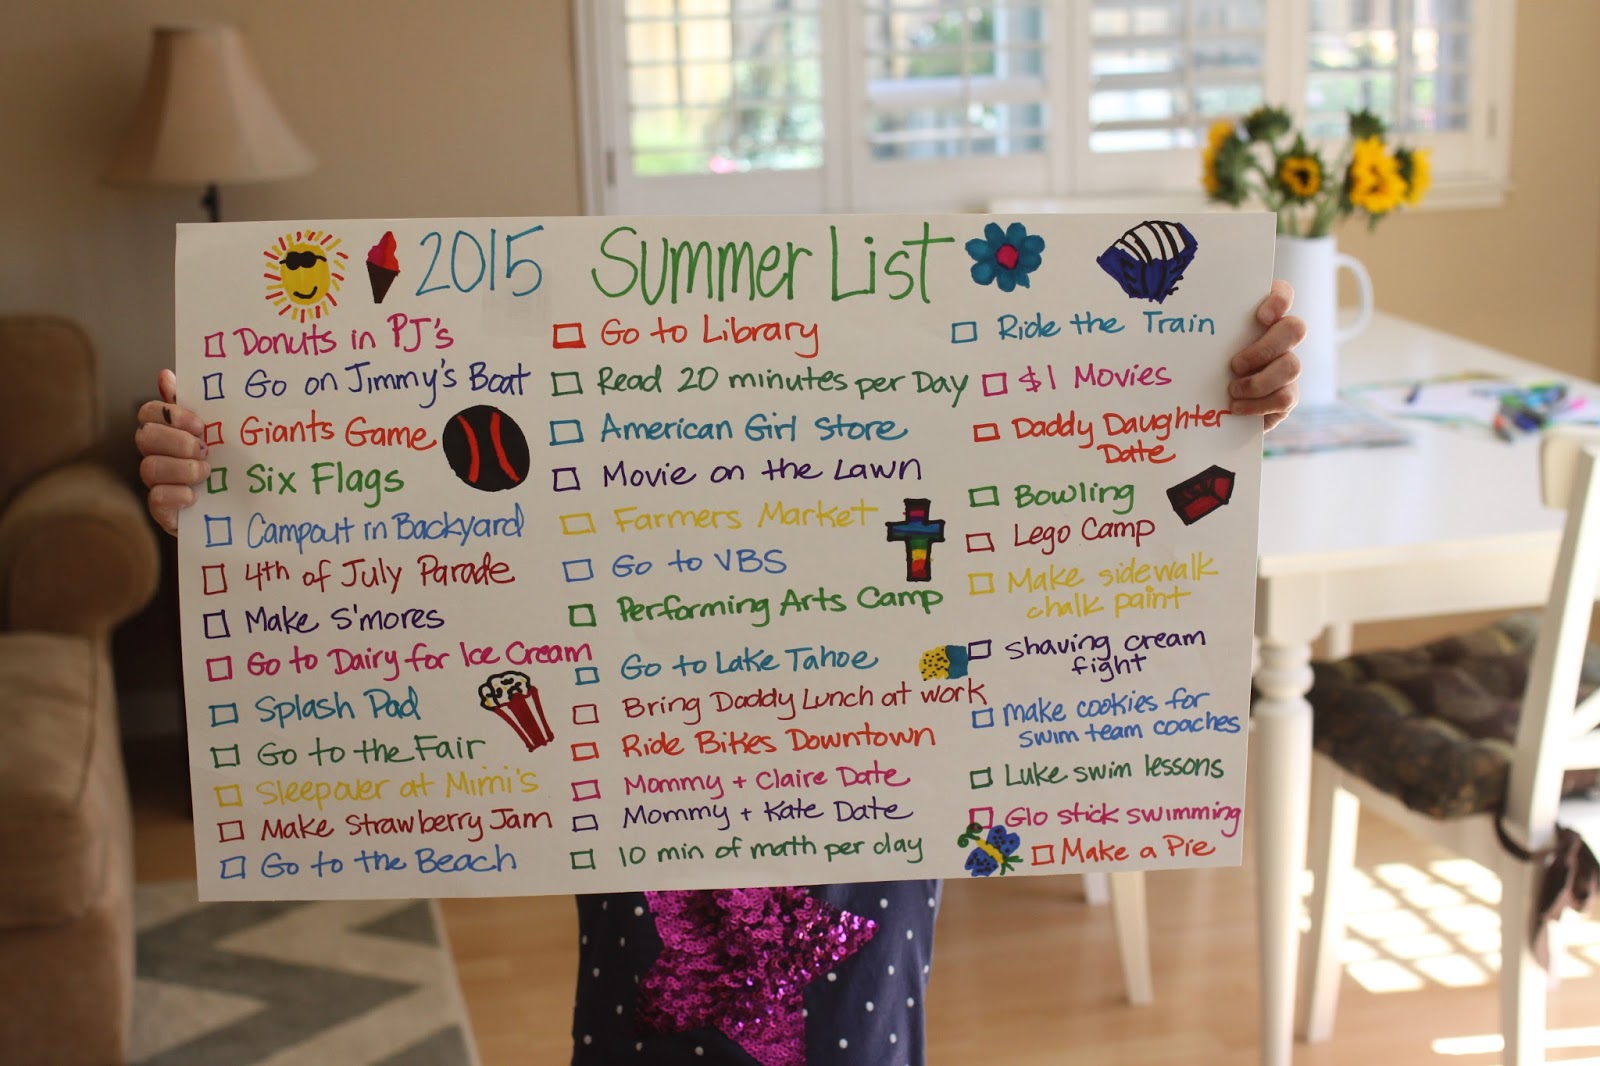 2015 Summer List
Donuts in PJ's
Go on Jimmy's Boat
Giants Game
Six Flags
Campout in Backyard
4th of July Parade
Make S'mores
Go to Dairy for Ice Cream
Splash Pad
Go to the Fair
Sleepover at Mimi's
Make Strawberry Jam
Go to the Beach
Go to Library
Read 20 minutes per Day
American Girl Store
Movie on the Lawn
Farmers Market
Go to VBS
Performing Arts Camp
Go to Lake Tahoe
Bring Daddy Lunch at work
Ride Bikes Downtown
Mommy + Claire Date
Mommy + Kate Date
10 min of math per day
Ride the Train
$1 Movies
Daddy Daughter
Date
Bowling
Lego Camp
Make sidewalk
chalk paint
Shaving cream
fight
Make cookies for
swim team coaches
Luke swim lessons
Glo stick swimming
Make a Pie